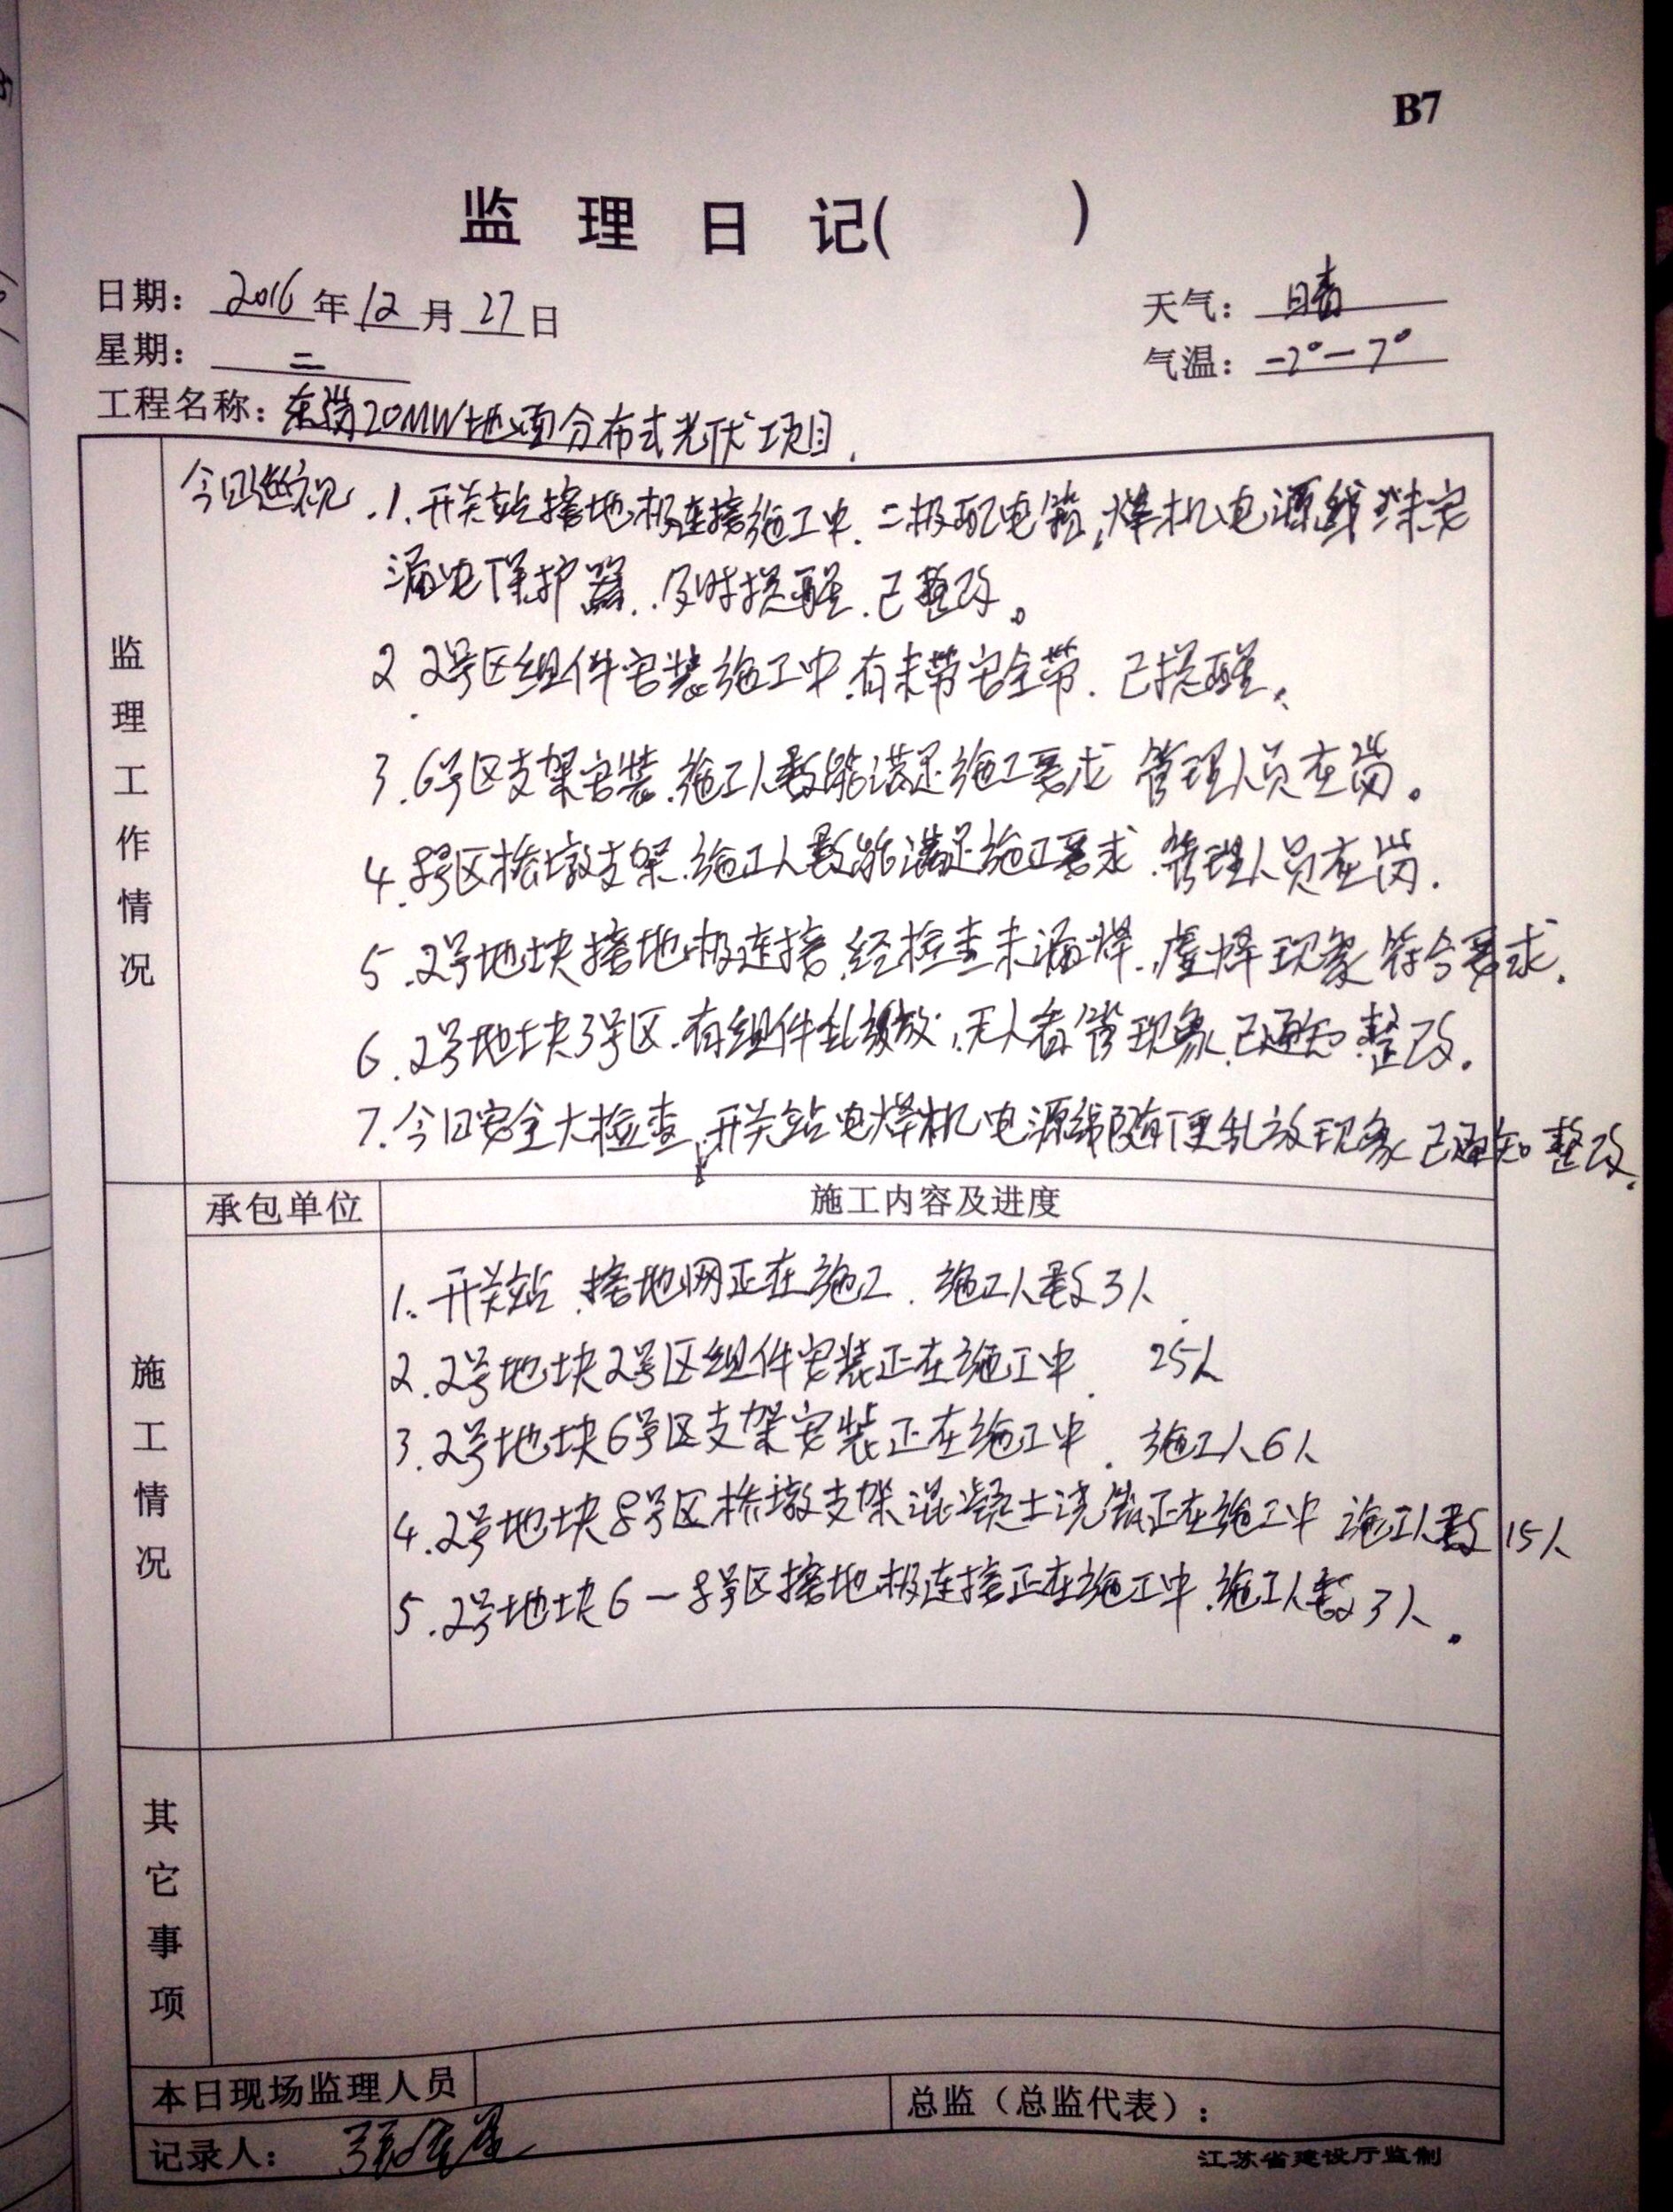 B7
监 理 日 记( )
日期: 2016 年 12 月 27 日
天气: 晴
星期: 二
气温: -2°-7°
工程名称: 东岗20MW地面分布式光伏项目.
监理工作情况
今日巡视.1.开关站接地极连接施工中.二极配电箱,焊机电源线未安
漏电保护器.及时提醒.已整改。
2 2号区组件安装施工中.有未带安全带.已提醒。
3.6号区支架安装.施工人数能满足施工要求 管理人员在岗。
4.8号区桥墩支架.施工人数能满足施工要求.管理人员在岗.
5.2号地块接地极连接.经检查未漏焊.虚焊现象符合要求.
6.2号地块3号区.有组件乱放.无人看管现象.已通知整改.
7.今日安全大检查,开关站电焊机电源线随便乱放现象已通知整改.
承包单位
施工内容及进度
施工情况
1.开关站.接地网正在施工.施工人数3人.
2.2号地块2号区组件安装正在施工中. 25人
3.2号地块6号区支架安装正在施工中.施工人6人
4.2号地块8号区桥墩支架混凝土浇筑正在施工中 施工人数15人
5.2号地块6-8号区接地极连接正在施工中.施工人数3人.
其它事项
本日现场监理人员
总监(总监代表):
记录人: 张
江苏省建设厅监制